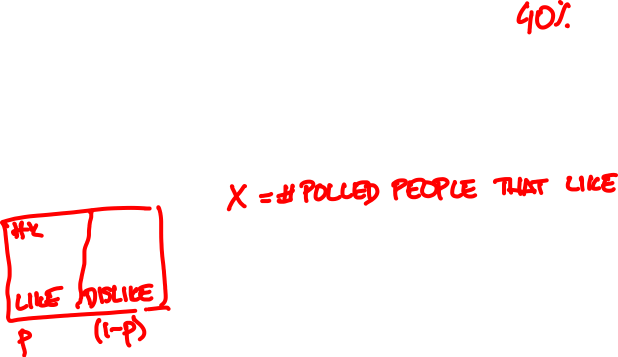 40%
X = # POLLED PEOPLE THAT LIKE
LIKE DISLIKE
p (1-p)